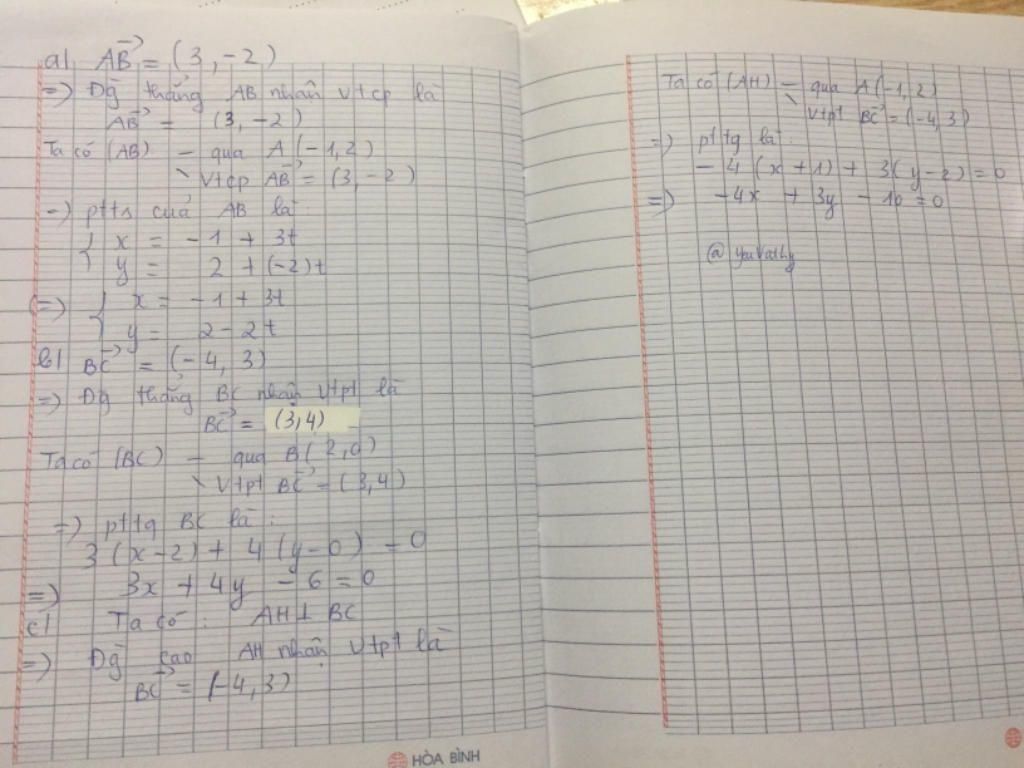 a) AB = (3, -2)
=) Đg thẳng AB nhận vtcp là
AB = (3, -2)
Ta có (AB) - qua A (-1, 2)
\ Vtcp AB = (3, -2)
-) ptts của AB là:
{ x = -1 + 3t
y = 2 + (-2) t
(=) { x = -1 + 3t
y = 2 - 2t
b) BC = (-4, 3)
=) Đg thẳng BC nhận vtpt là
BC = (3,4)
Ta có (BC) - qua B( 2,0)
\ Vtpt BC = (3,4)
=) pttq BC là:
3 (x-2) + 4 (y-0) = 0
=) 3x + 4y - 6 = 0
c) Ta có: AH ⊥ BC
=) Đg cao AH nhận vtpt là
BC = (-4, 3)
HÒA BÌNH
Ta có (AH) - qua A(-1, 2)
\ Vtpt BC = (-4, 3)
=) pttq là:
- 4 (x+1) + 3(y-2) = 0
=) -4x + 3y - 10 = 0
@ youvathy